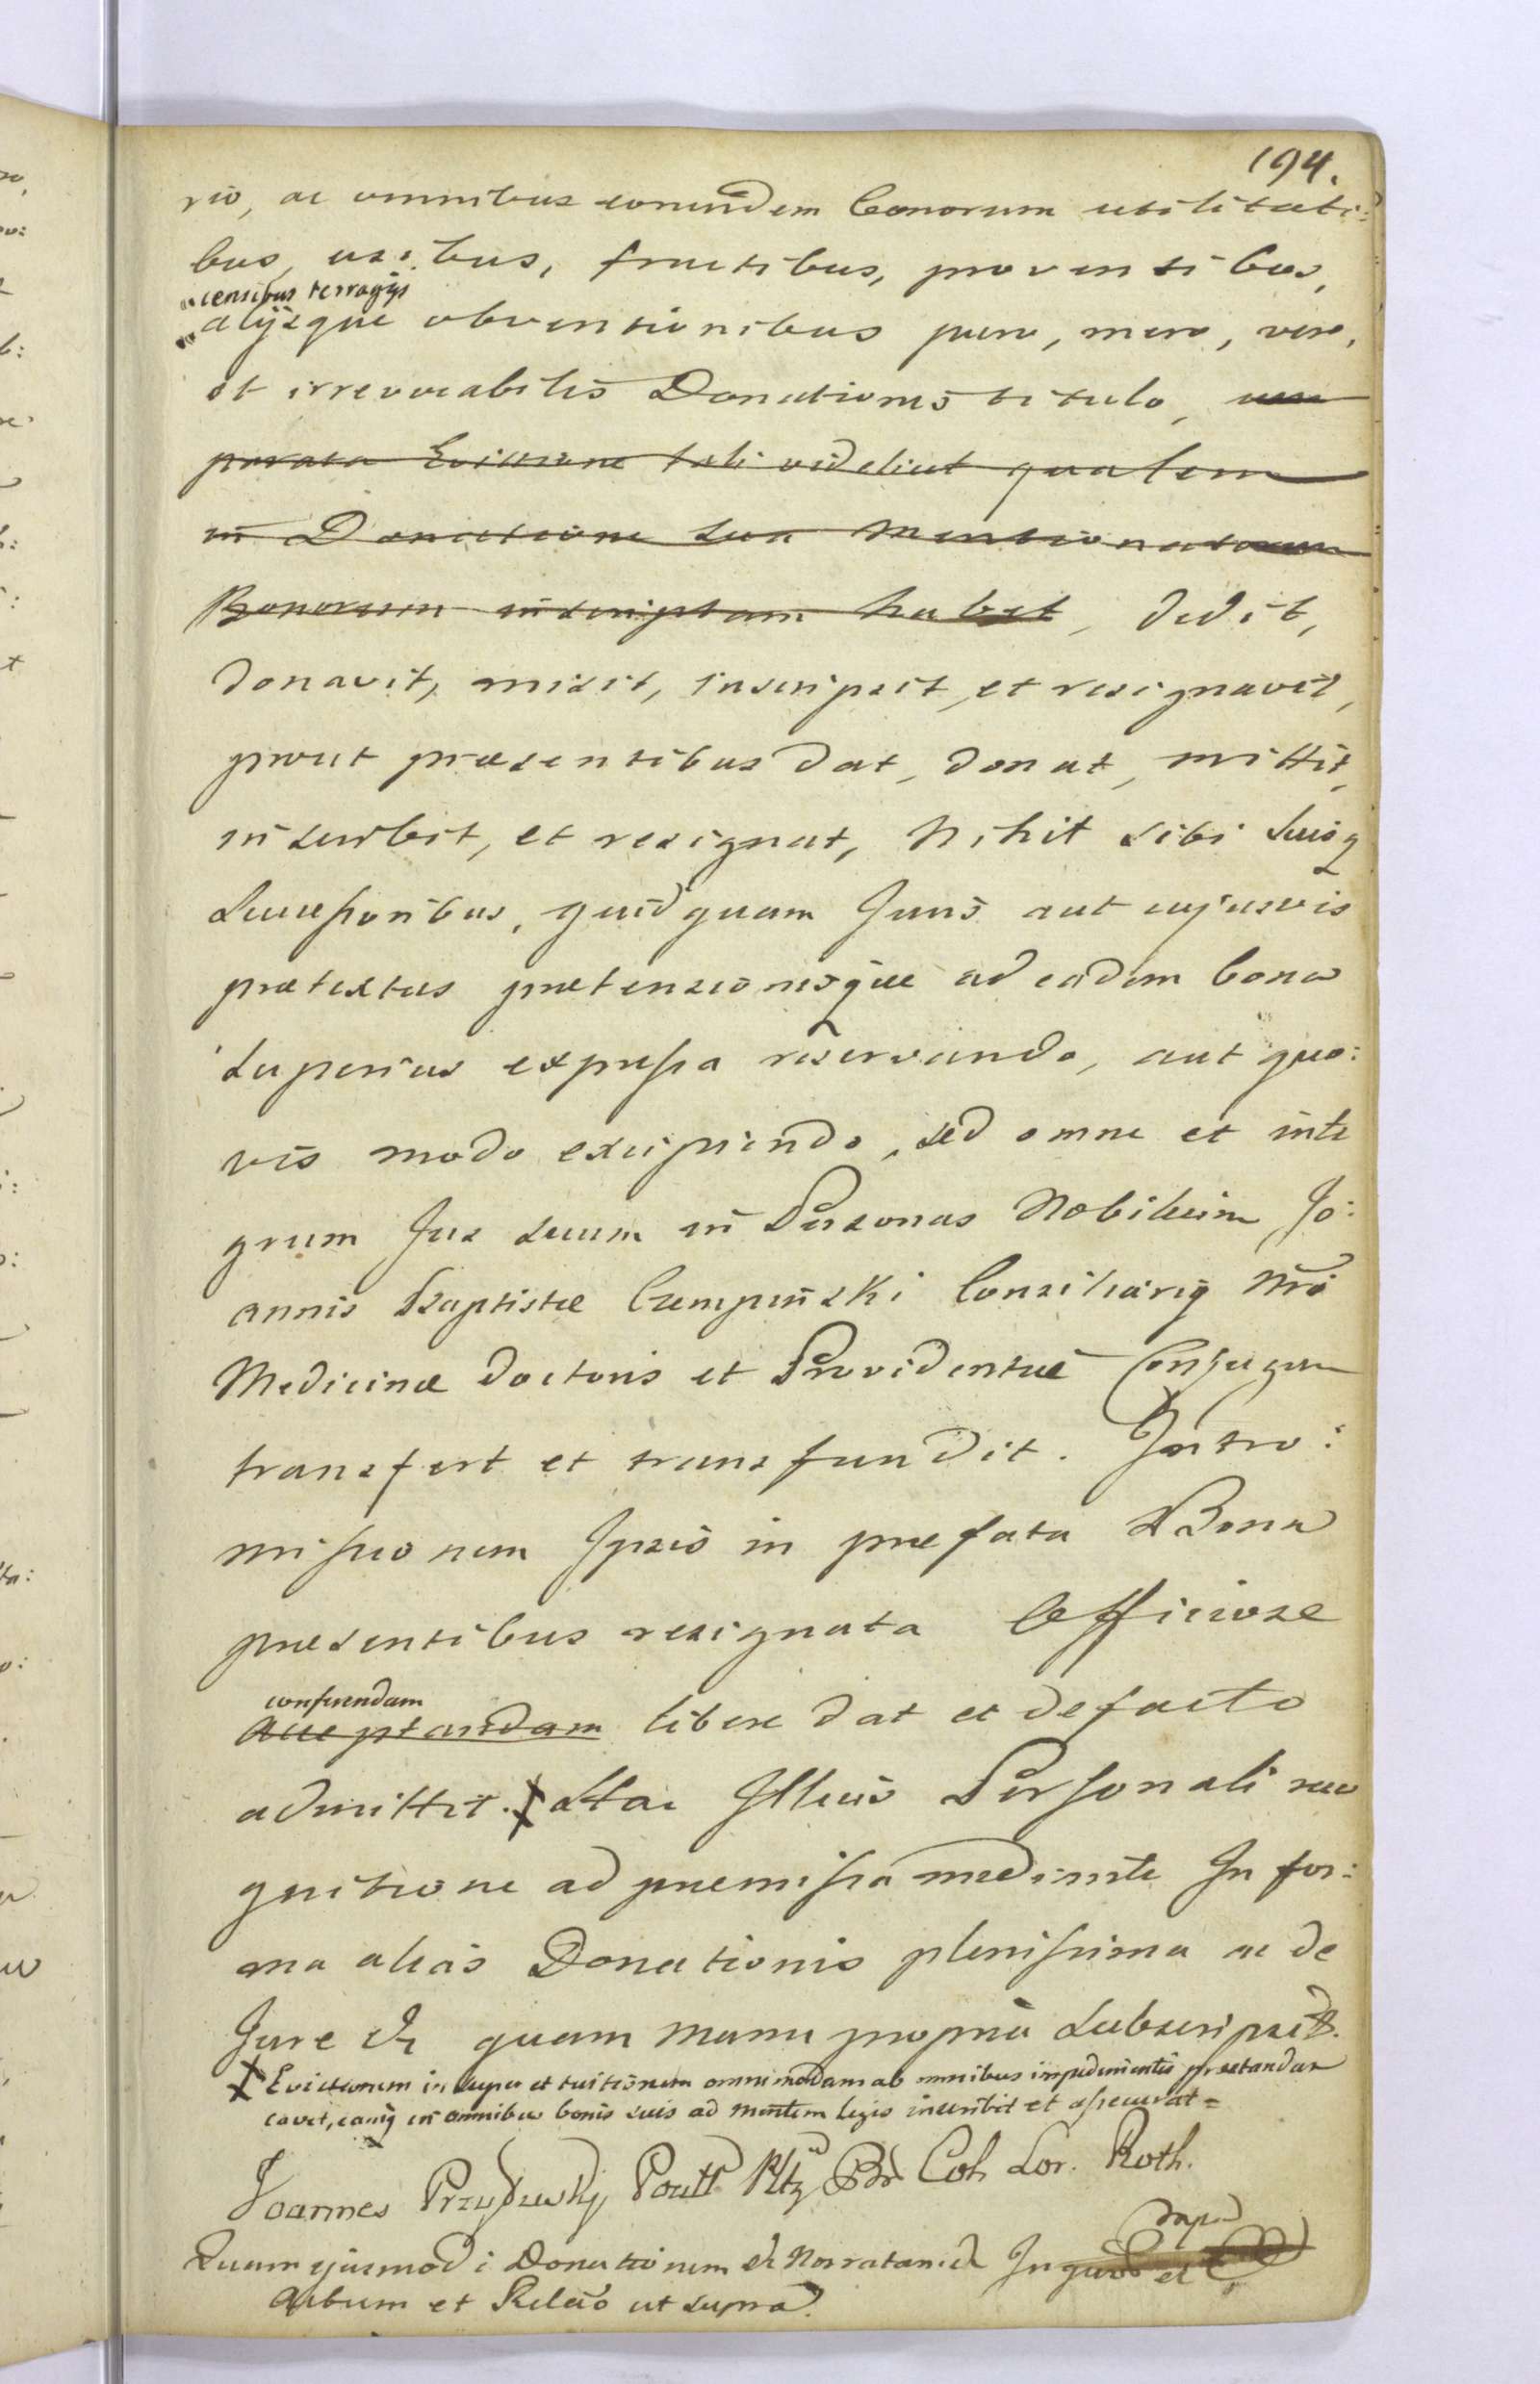 194.
rio, ac omnibus eorundem bonorum utilitati:
bus, usibus, fructibus, proventibus,
censibus terragijs
alijsque obventionibus puro, mero, vero,
et irrevocabilis Donationis titulo,
parata Evictione tali videlicet qualem
in Donatione sua mentionatorum
Bonorum inscriptam habet, dedit,
donavit, misit, inscripsit, et resignavit,
prout præsentibus dat, donat, mittit,
inscribit, et resignat, Nihil sibi suisq
Successoribus, quidquam Juris aut cujusvis
prætextus prætensionisque ad eadem bona
superius expressa reservando, aut quo:
vis modo excipiendo, sed omne et inte
grum Jus suum in Personas Nobilium Jo:
annis Baptistæ Czempiński Consiliarij Nri
Medicinæ Doctoris et Providentiæ Conjugum
transfert et transfundit. Intro:
missionem Ipsis in præfata Bona
præsentibus resignata Officiose
conferendam
acceptandam libere dat et de facto
admittit. X Hac Illius Personali reco
gnitione ad præmissa mediante In for:
ma alias Donationis plenissima ac de
Jure &c quam manu propria subscripsit.
X Evictionem insuper et tuitionem omnimodam ab omnibus impedimentis præstandam
cavet, eamq in omnibus bonis suis ad mentem legis inscribit et assecurat =
Joannes Coh Lor. Roth.
Quam ejusmodi Donationem &c Narratam &c In
Actum et Relatio ut supra.